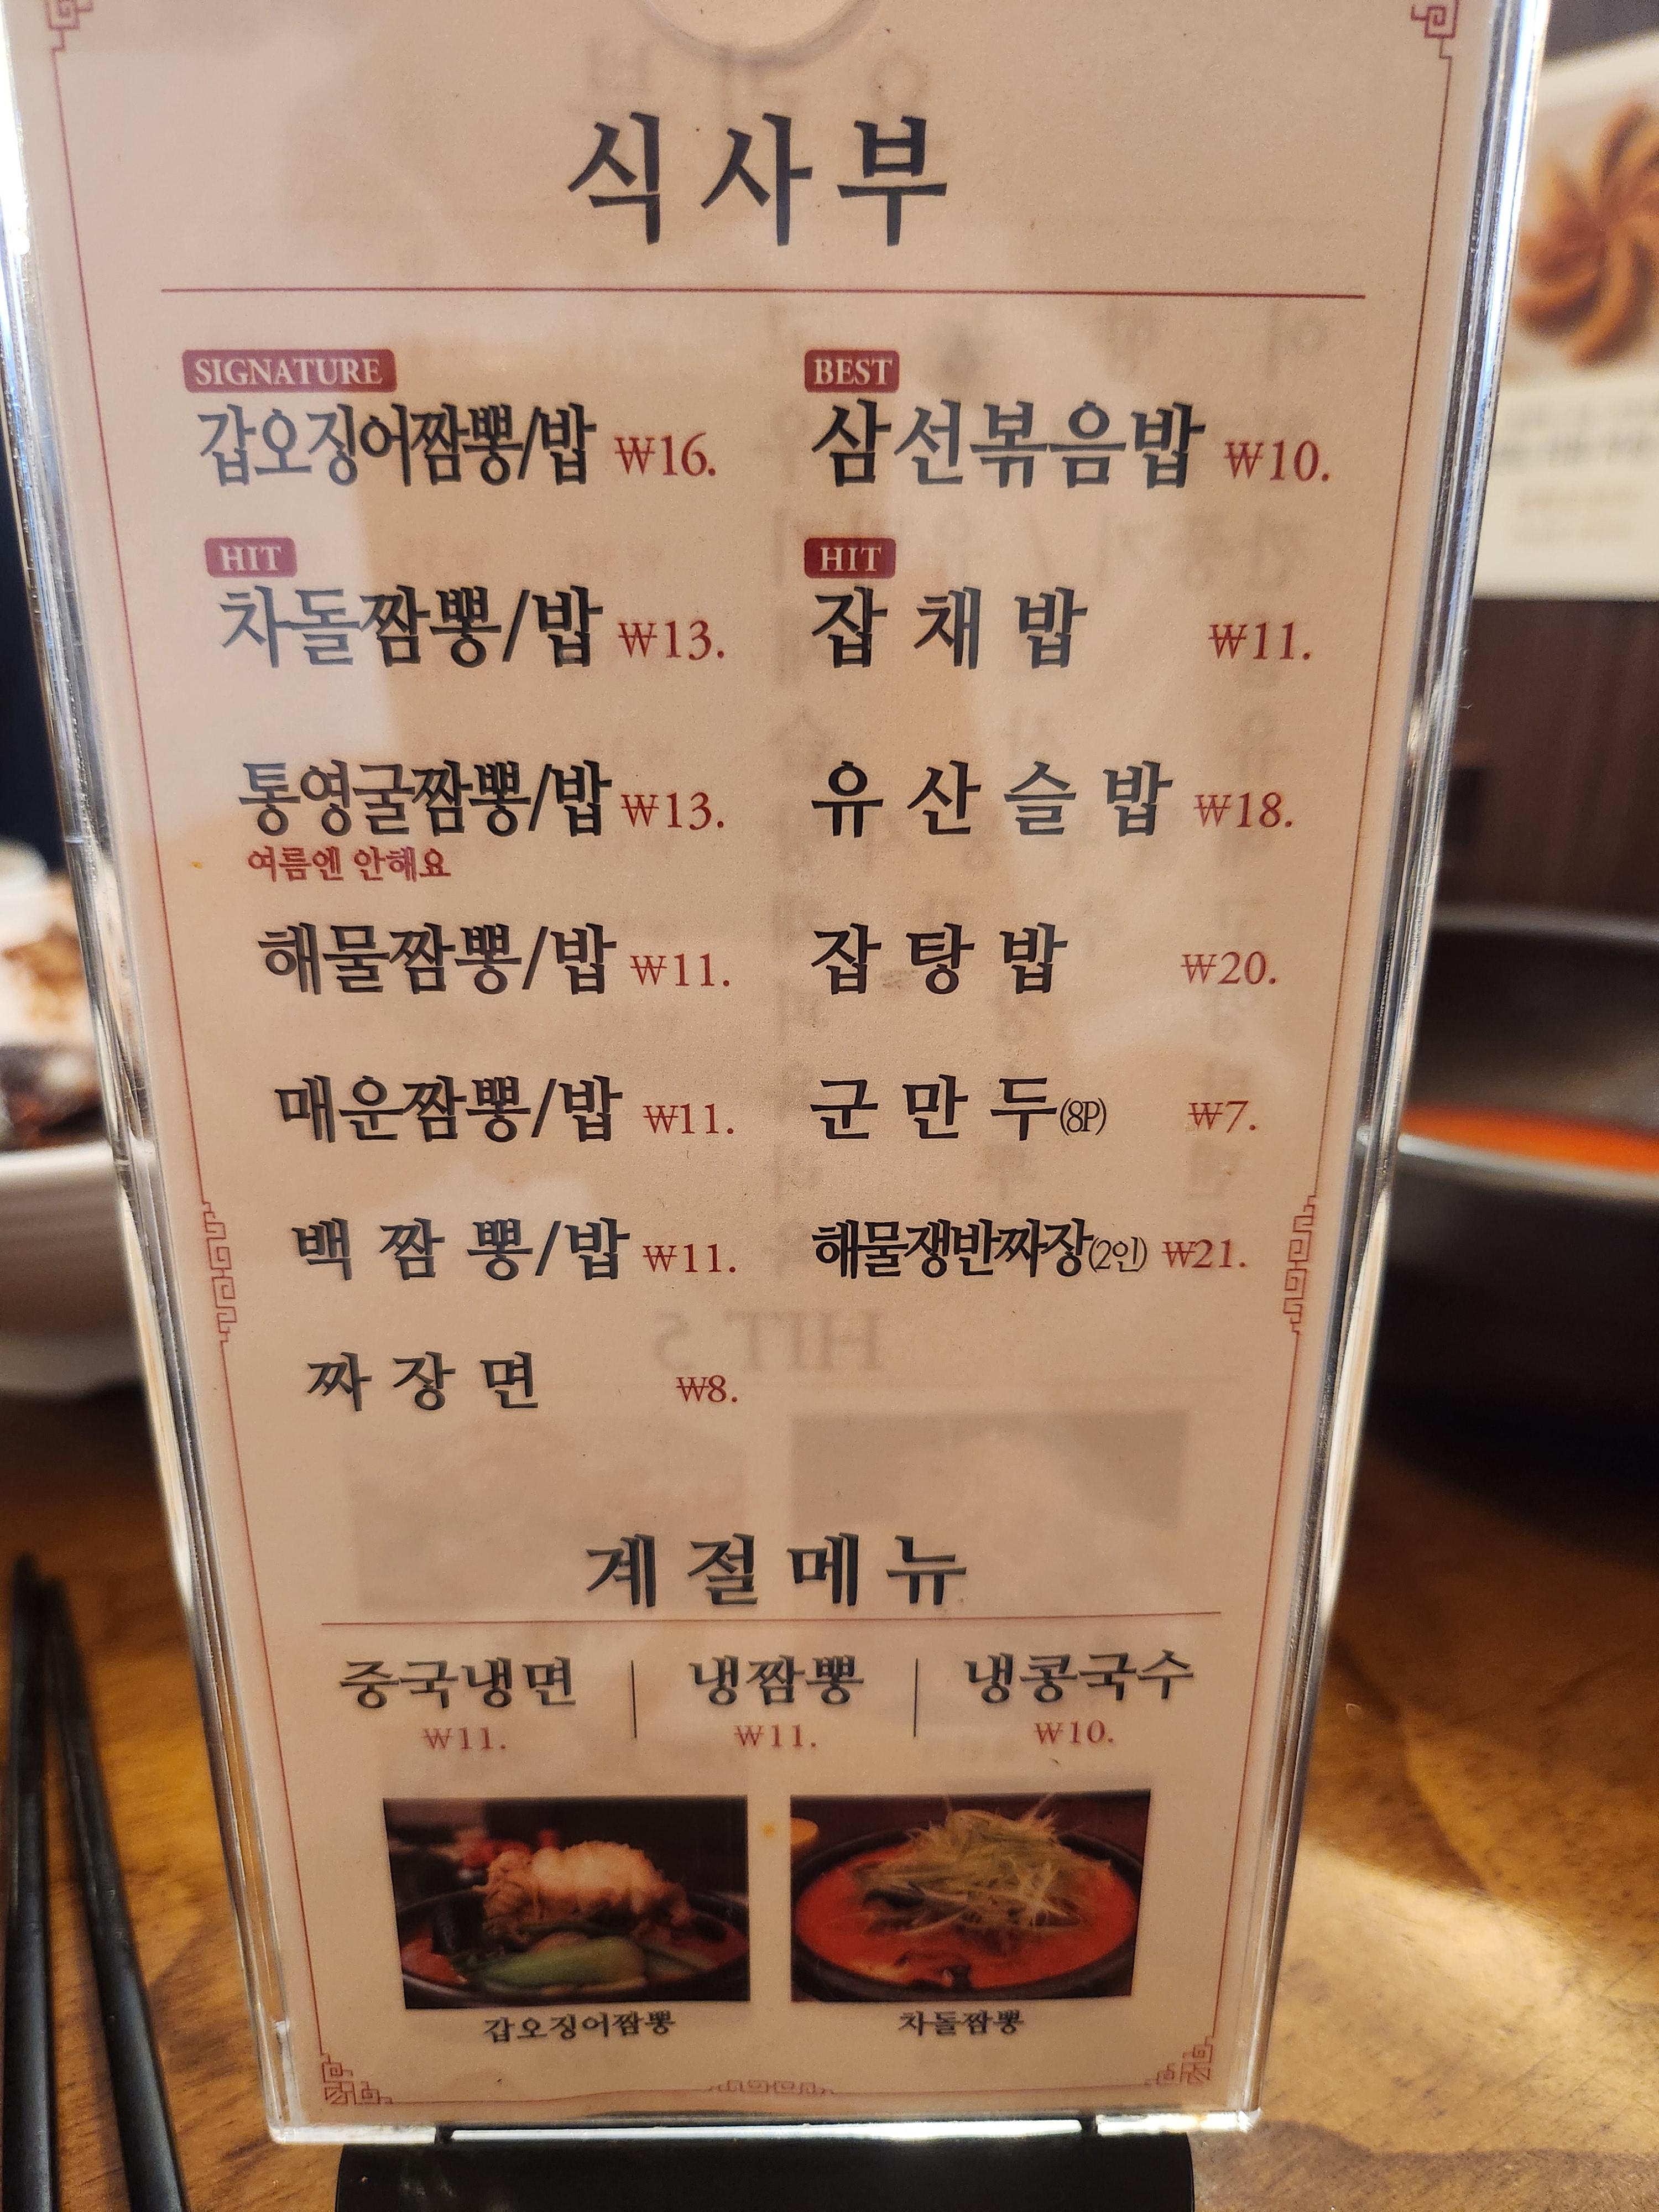 식사부
SIGNATURE
갑오징어짬뽕/밥 ₩16.
HIT
차돌짬뽕/밥 ₩13.
통영굴짬뽕/밥 ₩13.
여름엔 안해요
해물짬뽕/밥 ₩11.
매운짬뽕/밥 ₩11.
백 짬 뽕/밥 ₩11.
짜 장 면 ₩8.
BEST
삼선볶음밥 ₩10.
HIT
잡 채 밥 ₩11.
유 산 슬 밥 ₩18.
잡 탕 밥 ₩20.
군 만 두(8P) ₩7.
해물쟁반짜장(2인) ₩21.
계절메뉴
중국냉면 | 냉짬뽕 | 냉콩국수
₩11. ₩11. ₩10.
갑오징어짬뽕 차돌짬뽕